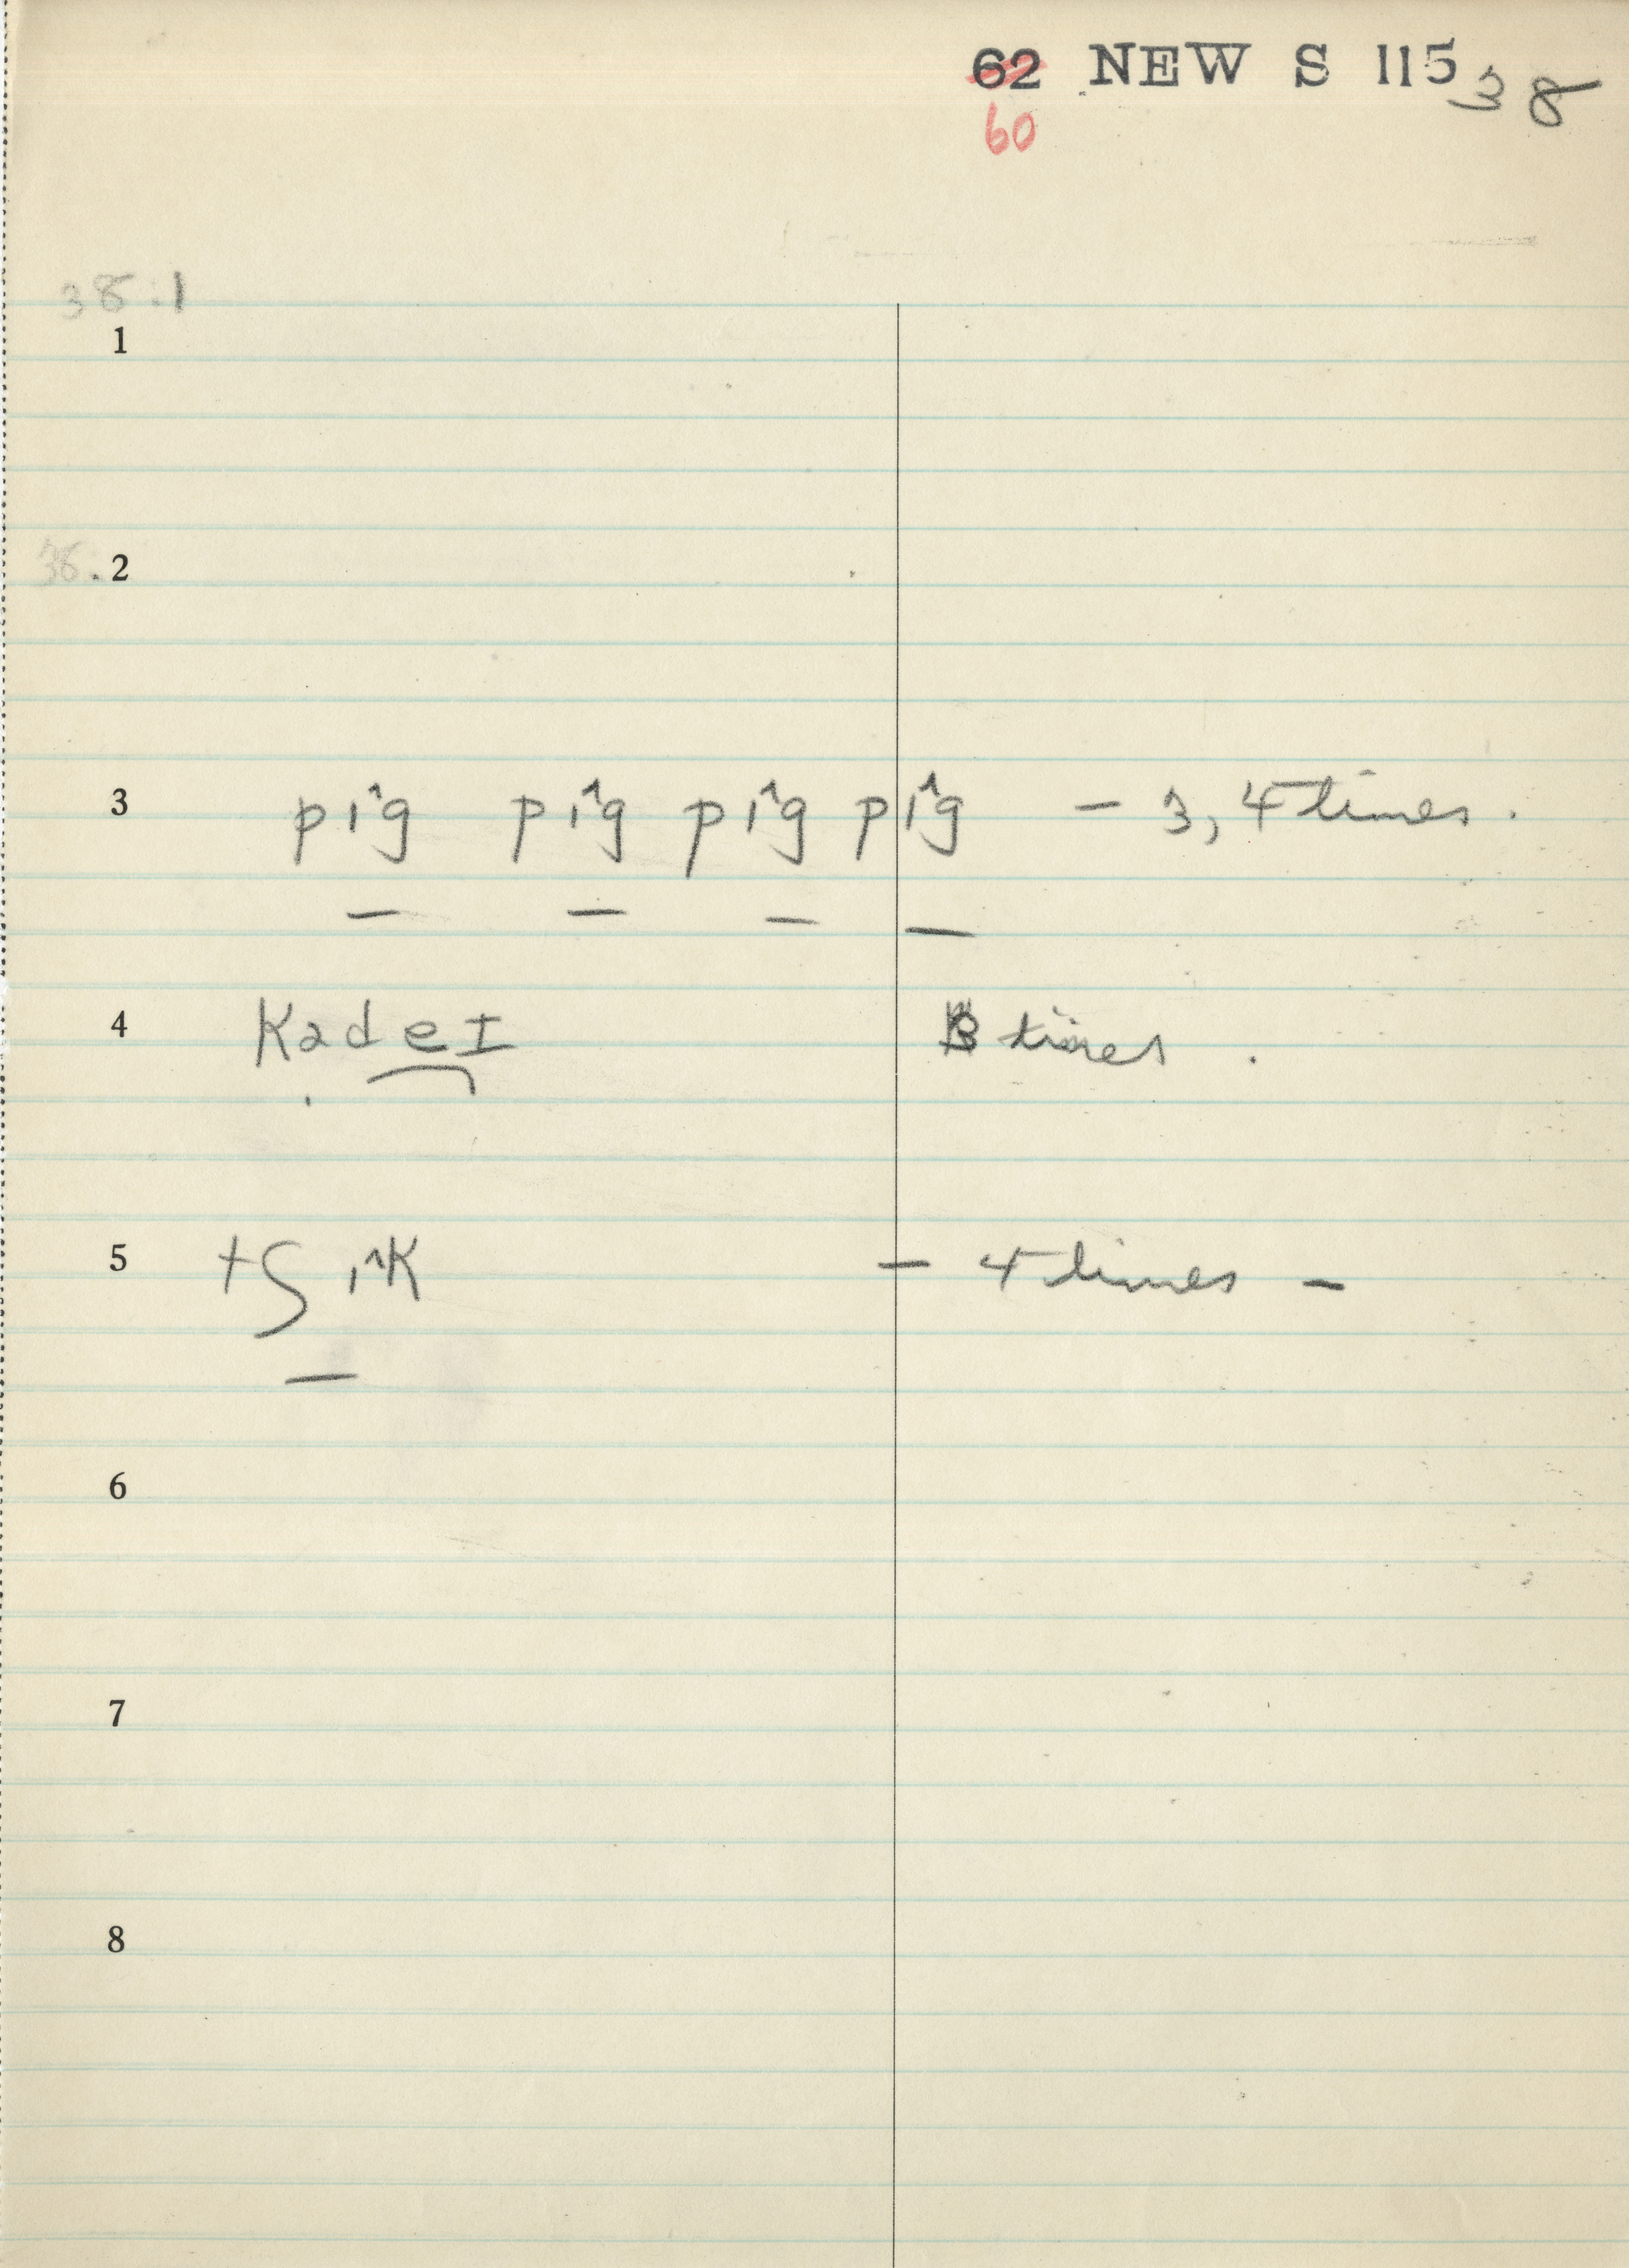 62 NEW S 115 38
60
38.1
1
38.2
3 pı̂g pı̂g pı̂g pı̂g – 3, 4 times.
4 Kadeɪ 3 times.
5 tʃ ı̂K – 4 times –
6
7
8